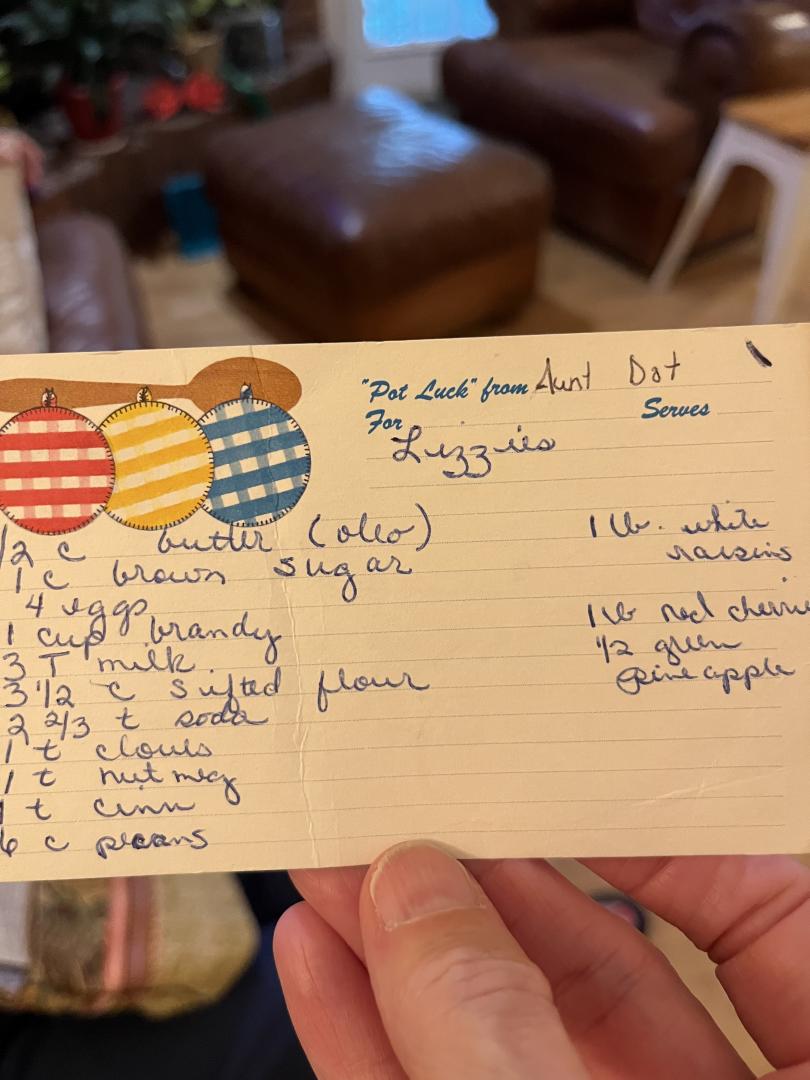 "Pot Luck" from Aunt Dot
For Lizzies
Serves
1/2 c butter (oleo)
1 c brown sugar
4 eggs
1 cup brandy
3 T milk
3 1/2 c sifted flour
2 2/3 t soda
1 t clouls
1 t nutmeg
1 t cinn
6 c pecans
1 lb. white
raisins
1 lb red cherrie
1/2 green
pineapple